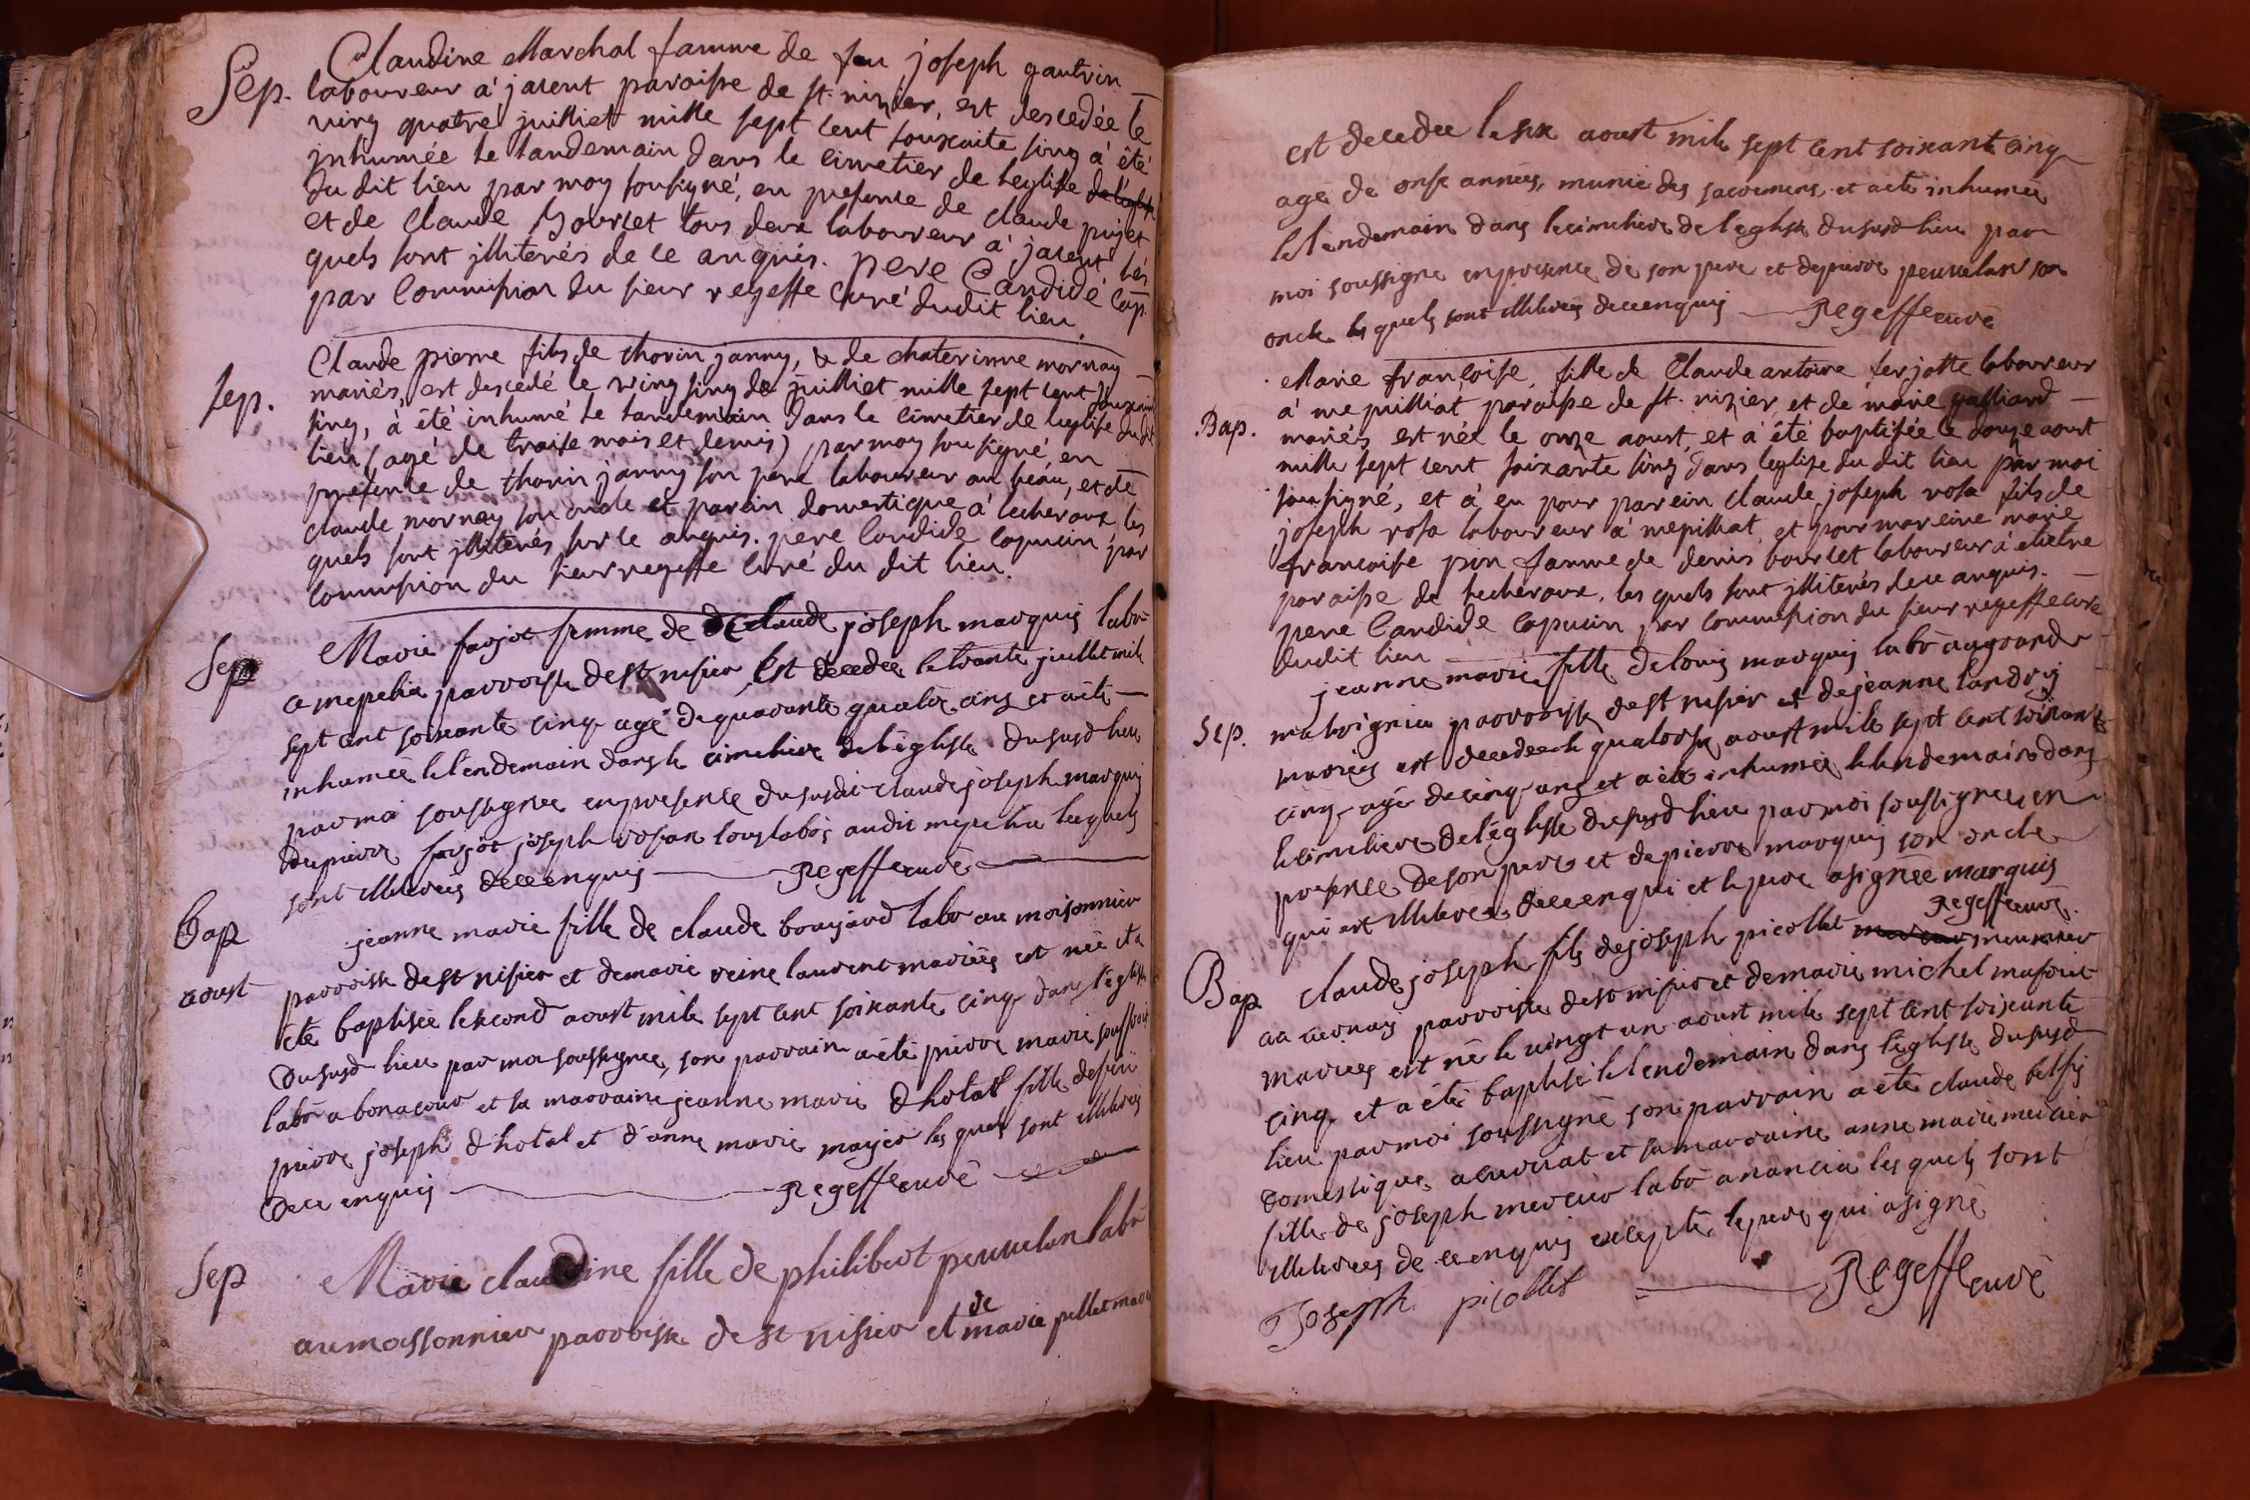 Claudine Marchal famme de feu joseph gautrin
Sep. laboureur à jarent paroisse de st. nizier, est descedée le
ving quatre juilliett mille sept cent souxante sinq à été
inhumée le landemain dans le cimetier de leglise
du dit lieu par moy sousigné, en presence de claude pujet
et de Claude Bourcet tous deux laboureur à jarent lés
quels sont jlliterés de ce anquis. pere Candide cap.
par Commission du sieur regeffe curé dudit lieu.
Claude pierre fils de thorin janny, & de chaterinne mornay
sep. mariés, est descedé le ving sinq de juilliet mille sept cent souxante
sinq, à été inhumé le landemain dans le cimetier de leglise du dit
lieu (agé de traise mois et demis) par moy sousigné, en
presence de thorin janny son pere laboureur au beau, et de
claude mornay son oncle et parain domestique à lecheroux les
quels sont jlliterés sur ce anquis. pere Candide capucin, par
commission du sieur regeffe curé du dit lieu.
Sep Marie farjot femme de claude joseph marquis labr
a mepelia parroisse de st nisier est decedee le trante juillet mile
sept cent soixante cinq agé de quarante quatre ans et a été
inhumée le lendemain dans le cimetiere de léglisse du susd lieu
par moi soussignee en presence du susdit claude joseph marquis
de pierre farjot joseph rosan tous labõs audit mepelia lesquels
sont illiterées de ce enquis Regeffe curé
Bap jeanne marie fille de claude boujard labr au moisonnier
aoust parroisse de st nisier et de marie reine laurent mariées est née et a
été baptisée le second aoust mile sept cent soixante cinq dans léglise
du susd lieu par moi soussignee, son parrain a été pierre marie
labr a bonacour et sa marraine jeanne marie dhotal fille de feu
pierre joseph dhotal et d'anne marie les quels sont illiterés
de ce enquis Regeffe curé
Sep Marie claudine fille de philibert peuvelan labr
au moissonnier parroisse de st nisier et de marie pellet
est decedee le six aoust mile sept cent soixante cinq
agé de onse années, munie des sacremens et a ete inhumée
le lendemain dans le cimetiere de leglise du susd lieu par
moi soussigne en presence de son pere et de pierre peuvelan son
oncle les quels sont illiterées de ce enquis Regeffe curé
Marie françoise, fille de Claude antoine ferjotte laboureur
Bap. à mepilliat paroisse de st. nizier et de marie galliard
mariés est née le onze aoust, et à été baptisée le douze aoust
mille sept cent soixante sinq dans leglise du dit lieu par moi
sousigné, et à eu pour parein claude joseph rosa fils de
joseph rosa laboureur à mepilliat, et pour mareine marie
francoise pin famme de denis bourcet laboureur à
paroisse de lecheroux, les quels sont jlliterés de ce anquis.
pere Candide capucin par commission du sieur regeffe curé
dudit lieu
jeanne marie fille de louis marquis labr au grand
Sep. malvigniu parroisse de st nisier et de jeanne landrij
mariées est decedee le quatorse aoust mile sept cent soixante
cinq agé de cinq ans et a été inhumée le lendemain dans
le cimetiere de léglisse du susd lieu par moi soussignee en
presence de son pere et de pierre marquis son oncle
qui est illiteree de ce enqui et le pere a signée marquis
Regeffe curé.
Bap claude joseph fils de joseph picollet meunier
au parroisse de st nisier et de marie michel
mariees est né le vingt un aoust mile sept cent soixante
cinq et a été baptisé le lendemain dans léglise du susd
lieu par moi soussigné son parrain a été claude
domestique a et sa marraine anne marie mercier
fille de joseph mercier labr a les quels sont
illiterees de ce enquis excepté le pere qui a signé
Joseph picollet Regeffe curé